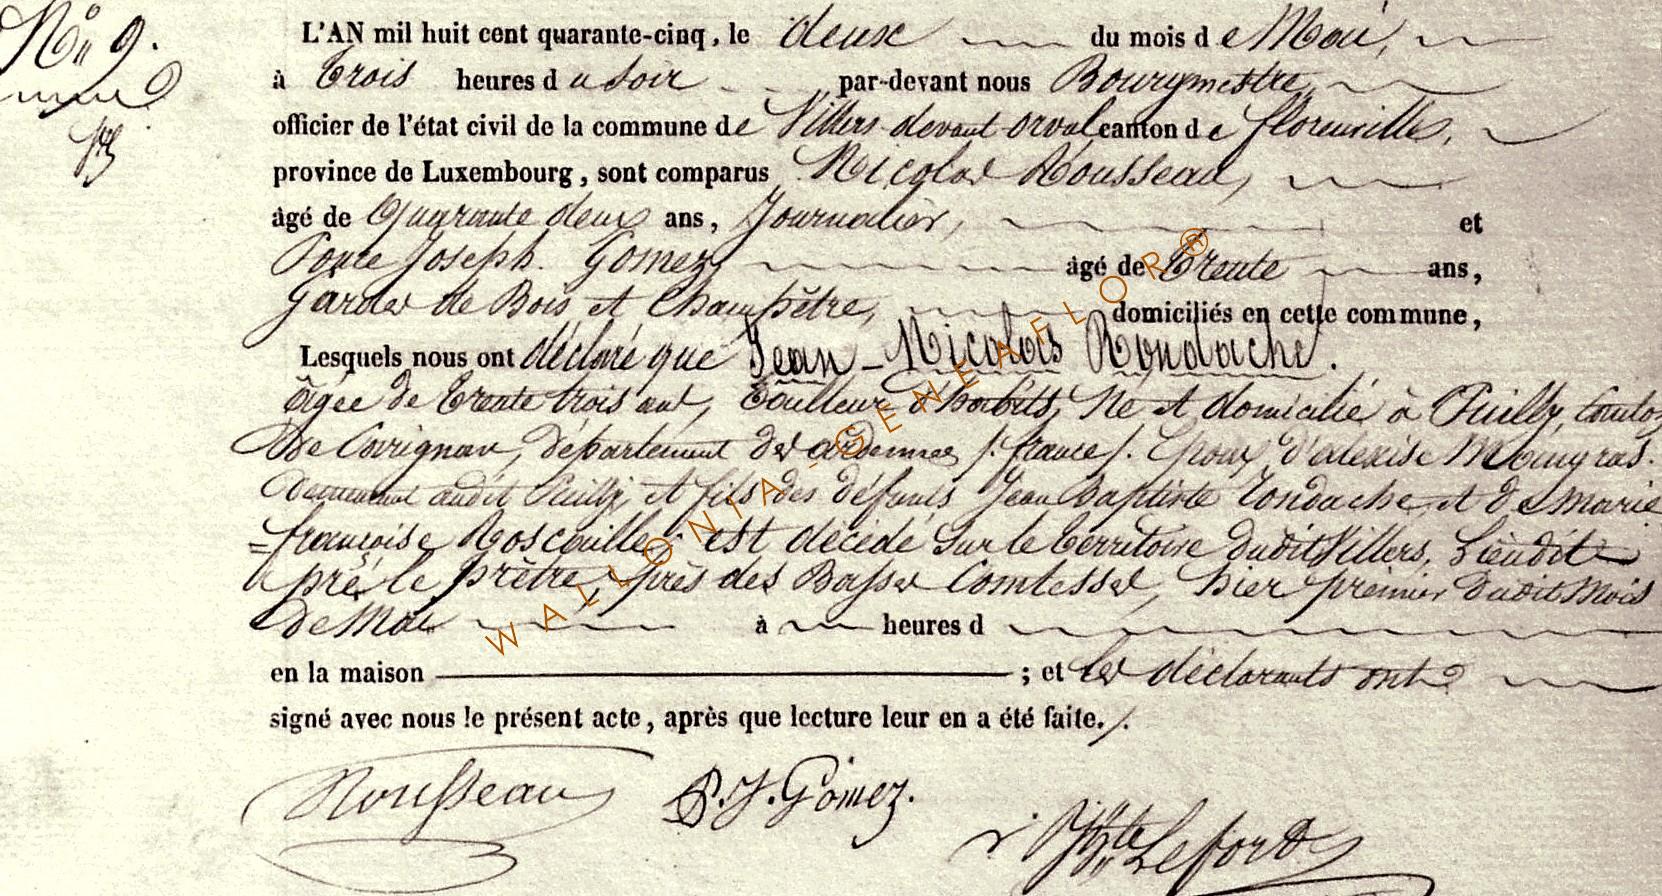 N° 9.
L'AN mil huit cent quarante-cinq, le deux du mois de Mai,
à Trois heures du soir par-devant nous Bourgmestre,
officier de l'état civil de la commune de Villers devant orval canton de florenville,
province de Luxembourg, sont comparus Nicolas Rousseau,
âgé de Quarante deux ans, Journalier, et
Joseph Gomez, âgé de Trente ans,
garde de Bois et Champêtre, domiciliés en cette commune,
Lesquels nous ont déclaré que Jean-Nicolas Rondache.
âgée de Trente trois ans, Tailleur d'habits, Né et domicilié à Puilly, Canton
De Carignan, département des ardennes /. france /. Epoux d'alexise Mangras.
demeurant audit Puilly, et fils des défunts Jean Baptiste Rondache et de Marie
=françoise est décédé sur le territoire dudit Villers, Lieudit
pré le prêtre, près des Basses Comtesses, hier premier dudit Mois
de Mai à heures d
en la maison ; et les déclarants ont
signé avec nous le présent acte, après que lecture leur en a été faite. /.
Rousseau P. J. Gomez.
Lefort
WALLONIA-GENEAFLOR®